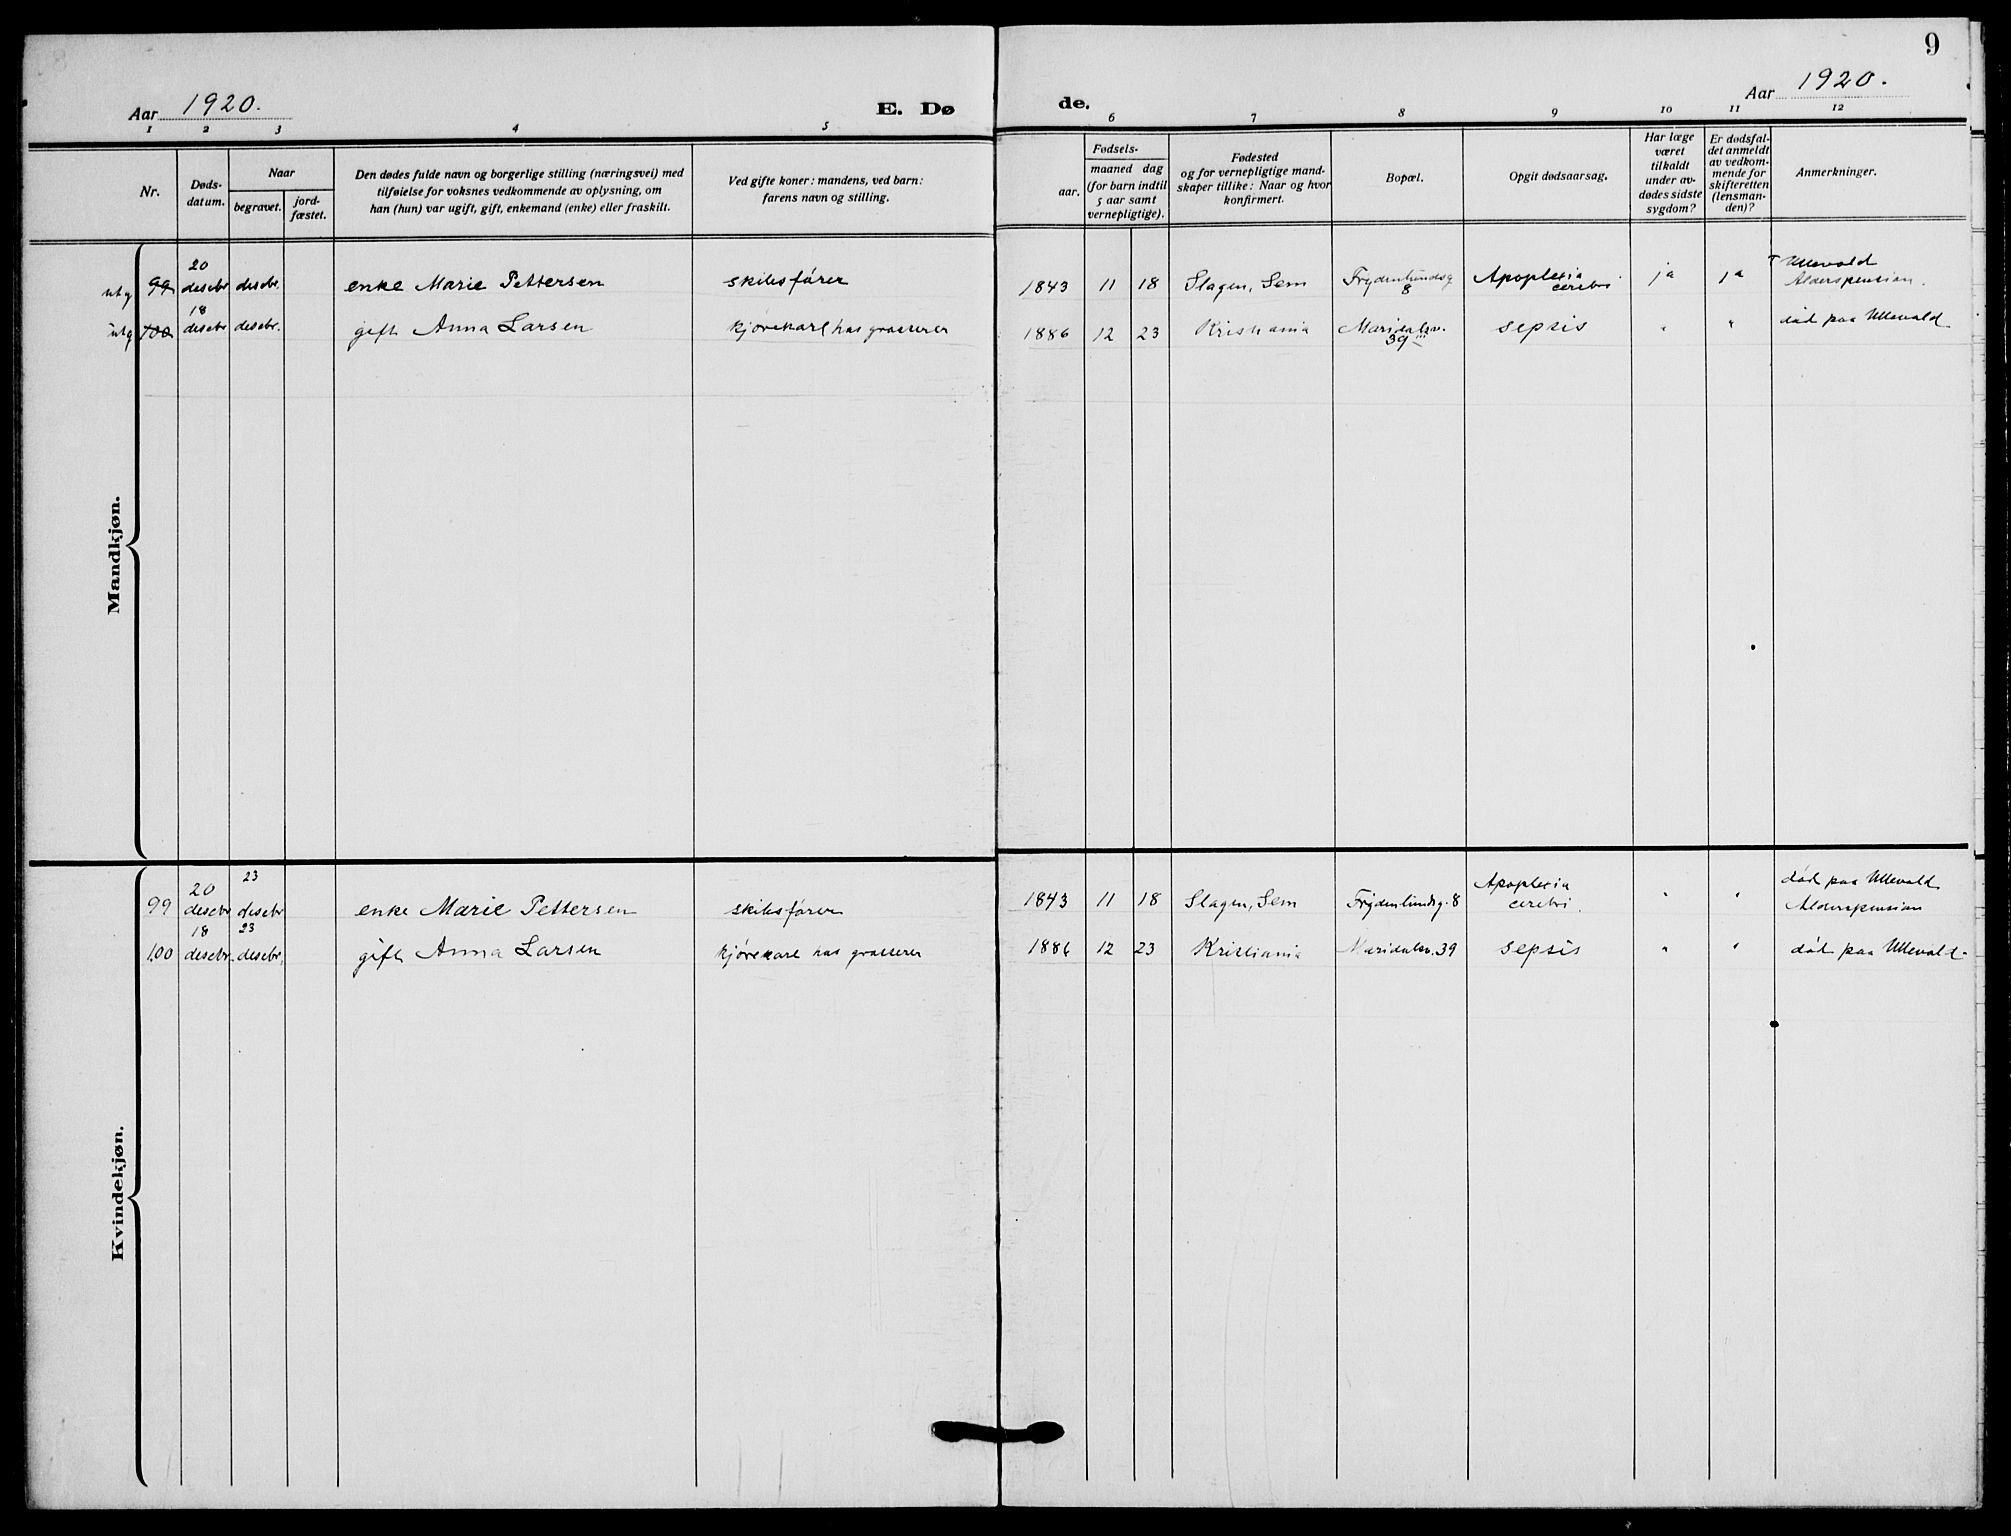 9
Aar 1920.
E. Dø
de.
Aar 1920.
1 2 3 4 5 6 7 8 9 10 11 12
Nr.
Døds-
datum.
Naar
begravet.
jord-
fæstet.
Den dødes fulde navn og borgerlige stilling (næringsvei) med
tilføielse for voksnes vedkommende av oplysning, om
han (hun) var ugift, gift, enkemand (enke) eller fraskilt.
Ved gifte koner: mandens, ved barn:
farens navn og stilling.
Fødsels-
aar.
maaned dag
(for barn indtil
5 aar samt
vernepligtige).
Fødested
og for vernepligtige mand-
skaper tillike: Naar og hvor
konfirmert.
Bopæl.
Opgit dødsaarsag.
Har læge
været
tilkaldt
under av-
dødes sidste
sygdom?
Er dødsfal-
det anmeldt
av vedkom-
mende for
skifteretten
(lensman-
den)?
Anmerkninger.
Mandkjøn.
20 Ullevold
utg 99 desebr desebr. enke Marie Pettersen skibsfører 1843 11 18 Slagen, Sem Frydenlundsg 8 Apoplexia cerebri ja ja Alderspension.
18
utg 100 desebr desebr. gift Anna Larsen kjørekarl hos grosserer 1886 12 23 Kristiania Maridalsv. 39 III sepsis " " død paa Ullevold
Kvindekjøn.
20 23 Apoplexia død paa Ullevold
99 desebr desebr enke Marie Pettersen skibsfører 1843 11 18 Slagen, Sem Frydenlundsg. 8 cerebri. " " Alderspension
18 23
100 desebr. desebr. gift Anna Larsen kjørekarl hos grosserer 1886 12 23 Kristiania Maridalsv. 39 sepsis " " død paa Ullevold.